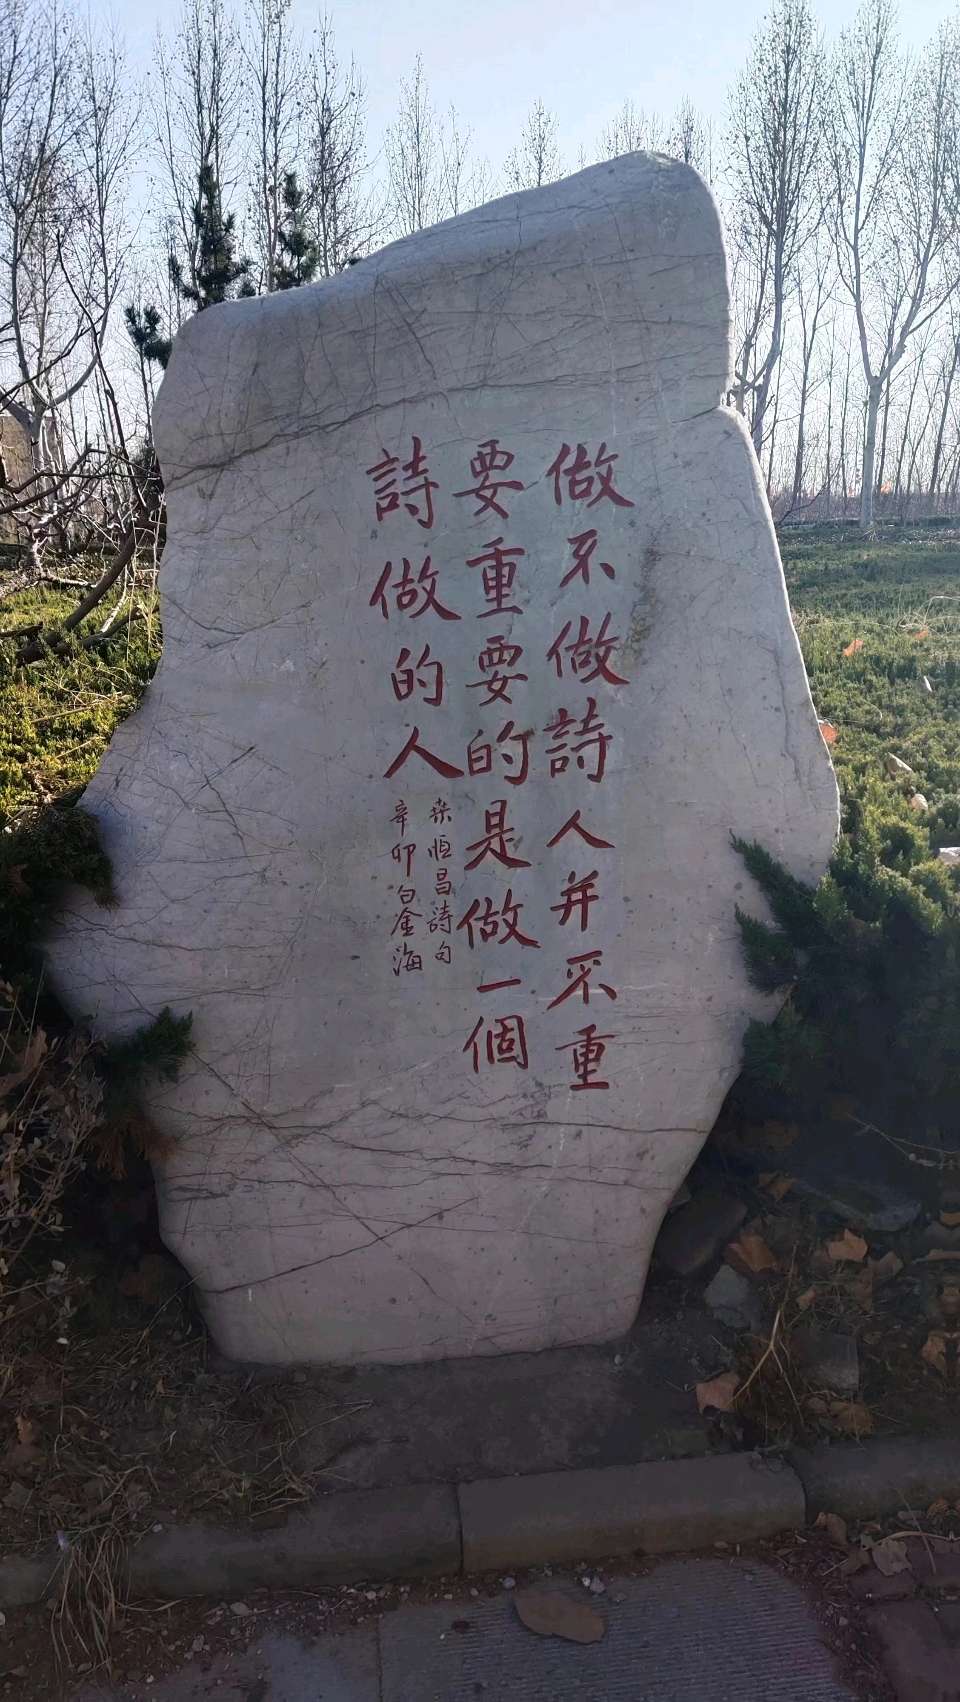 做不做詩人并不重
要重要的是做一個
詩做的人
桑恒昌詩句
辛卯白金海